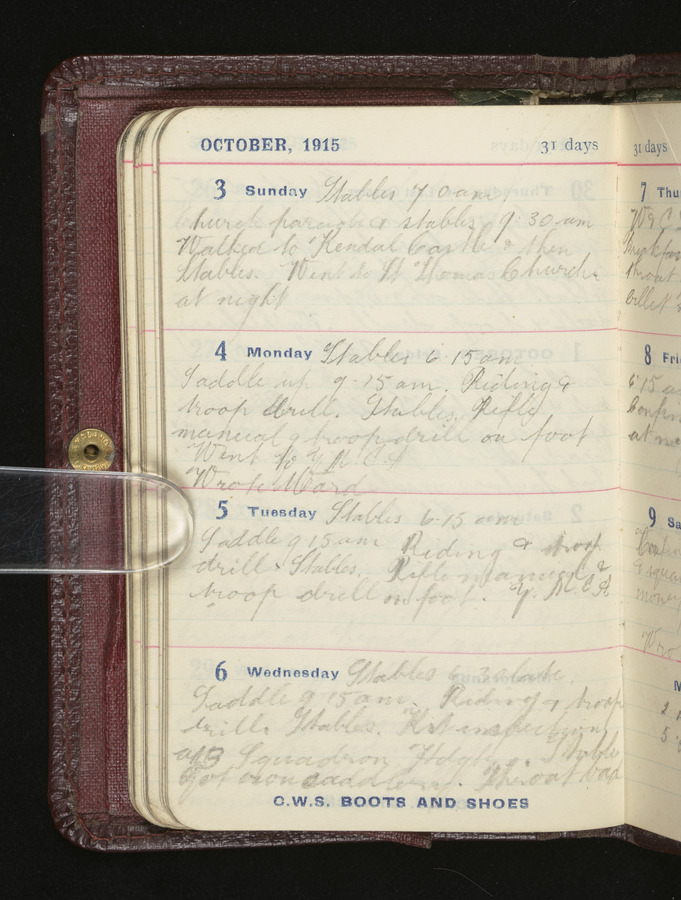 OCTOBER, 1915 31 days
3 Sunday Stables 7.0 am
Church parade & stables 9.30 am
Walked to Kendal Castle & then
Stables. Went to St Thomas Church
at night
4 Monday Stables 6.15 am
Saddle up 9.15 am. Riding &
troop drill. Stables. Rifle
manual & troop drill on foot
Went to Y.M.C.A
Wrote Ward
5 Tuesday Stables 6.15 am
Saddle 9.15 am Riding & troop
drill & Stables. Rifle manual &
troop drill on foot. Y.M.C.A.
6 Wednesday Stables 6.30 late.
Saddle 9.15 am. Riding & troop
drill. Stables. Kit inspection
at B Squadron Hdqtrs. Stables
Got own saddlery. Throat bad
C.W.S. BOOTS AND SHOES
31 days
7 Thu
throat
billet
8 Fri
6.15 a
9 Sa
money